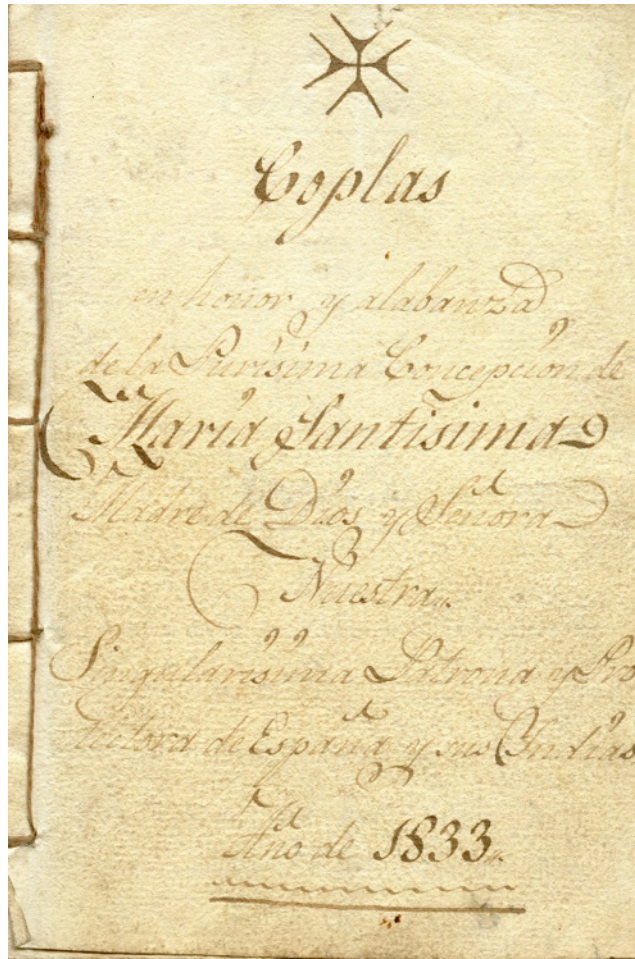 Coplas
en honor y alabanza
de la Purísima Concepción de
María Santísima
Madre de Dios y Señora
Nuestra.
Singularísima Patrona y Pro
tectora de España y sus Indias
Año de 1833.